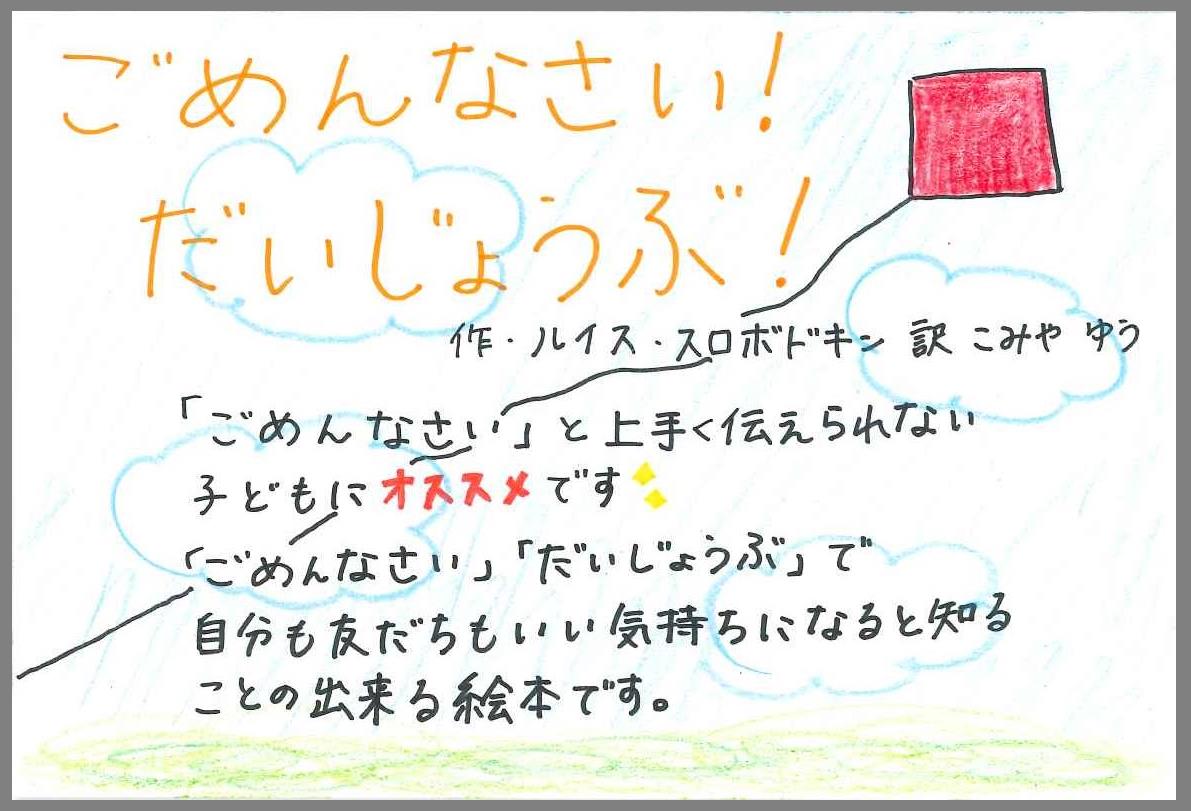 ごめんなさい!
だいじょうぶ!
作・ルイス・スロボドキン 訳 こみや ゆう
「ごめんなさい」と上手く伝えられない
子どもにオススメです
「ごめんなさい」「だいじょうぶ」で
自分も友だちもいい気持ちになると知る
ことの出来る絵本です。